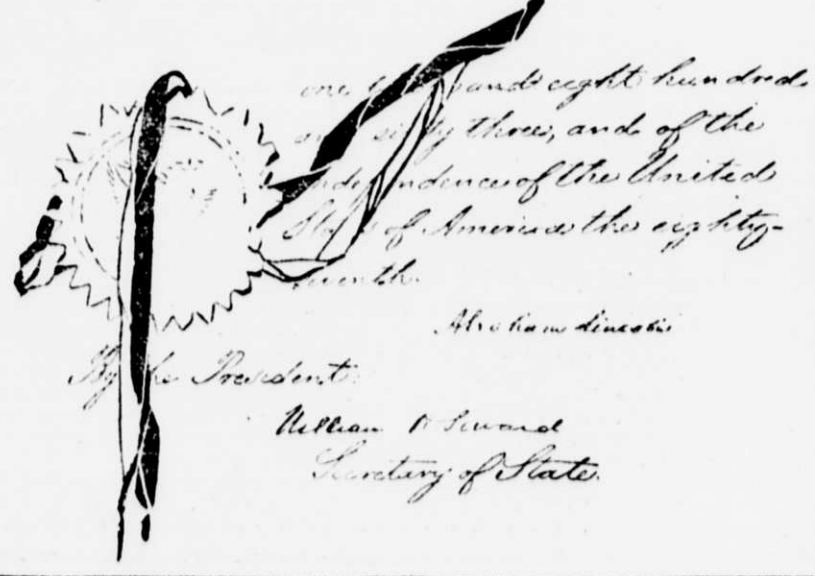 one thousand eight hundred
and sixty three, and of the
Independence of the United
States of America the eighty-
seventh.
Abraham Lincoln
By the President:
William H Seward
Secretary of State.